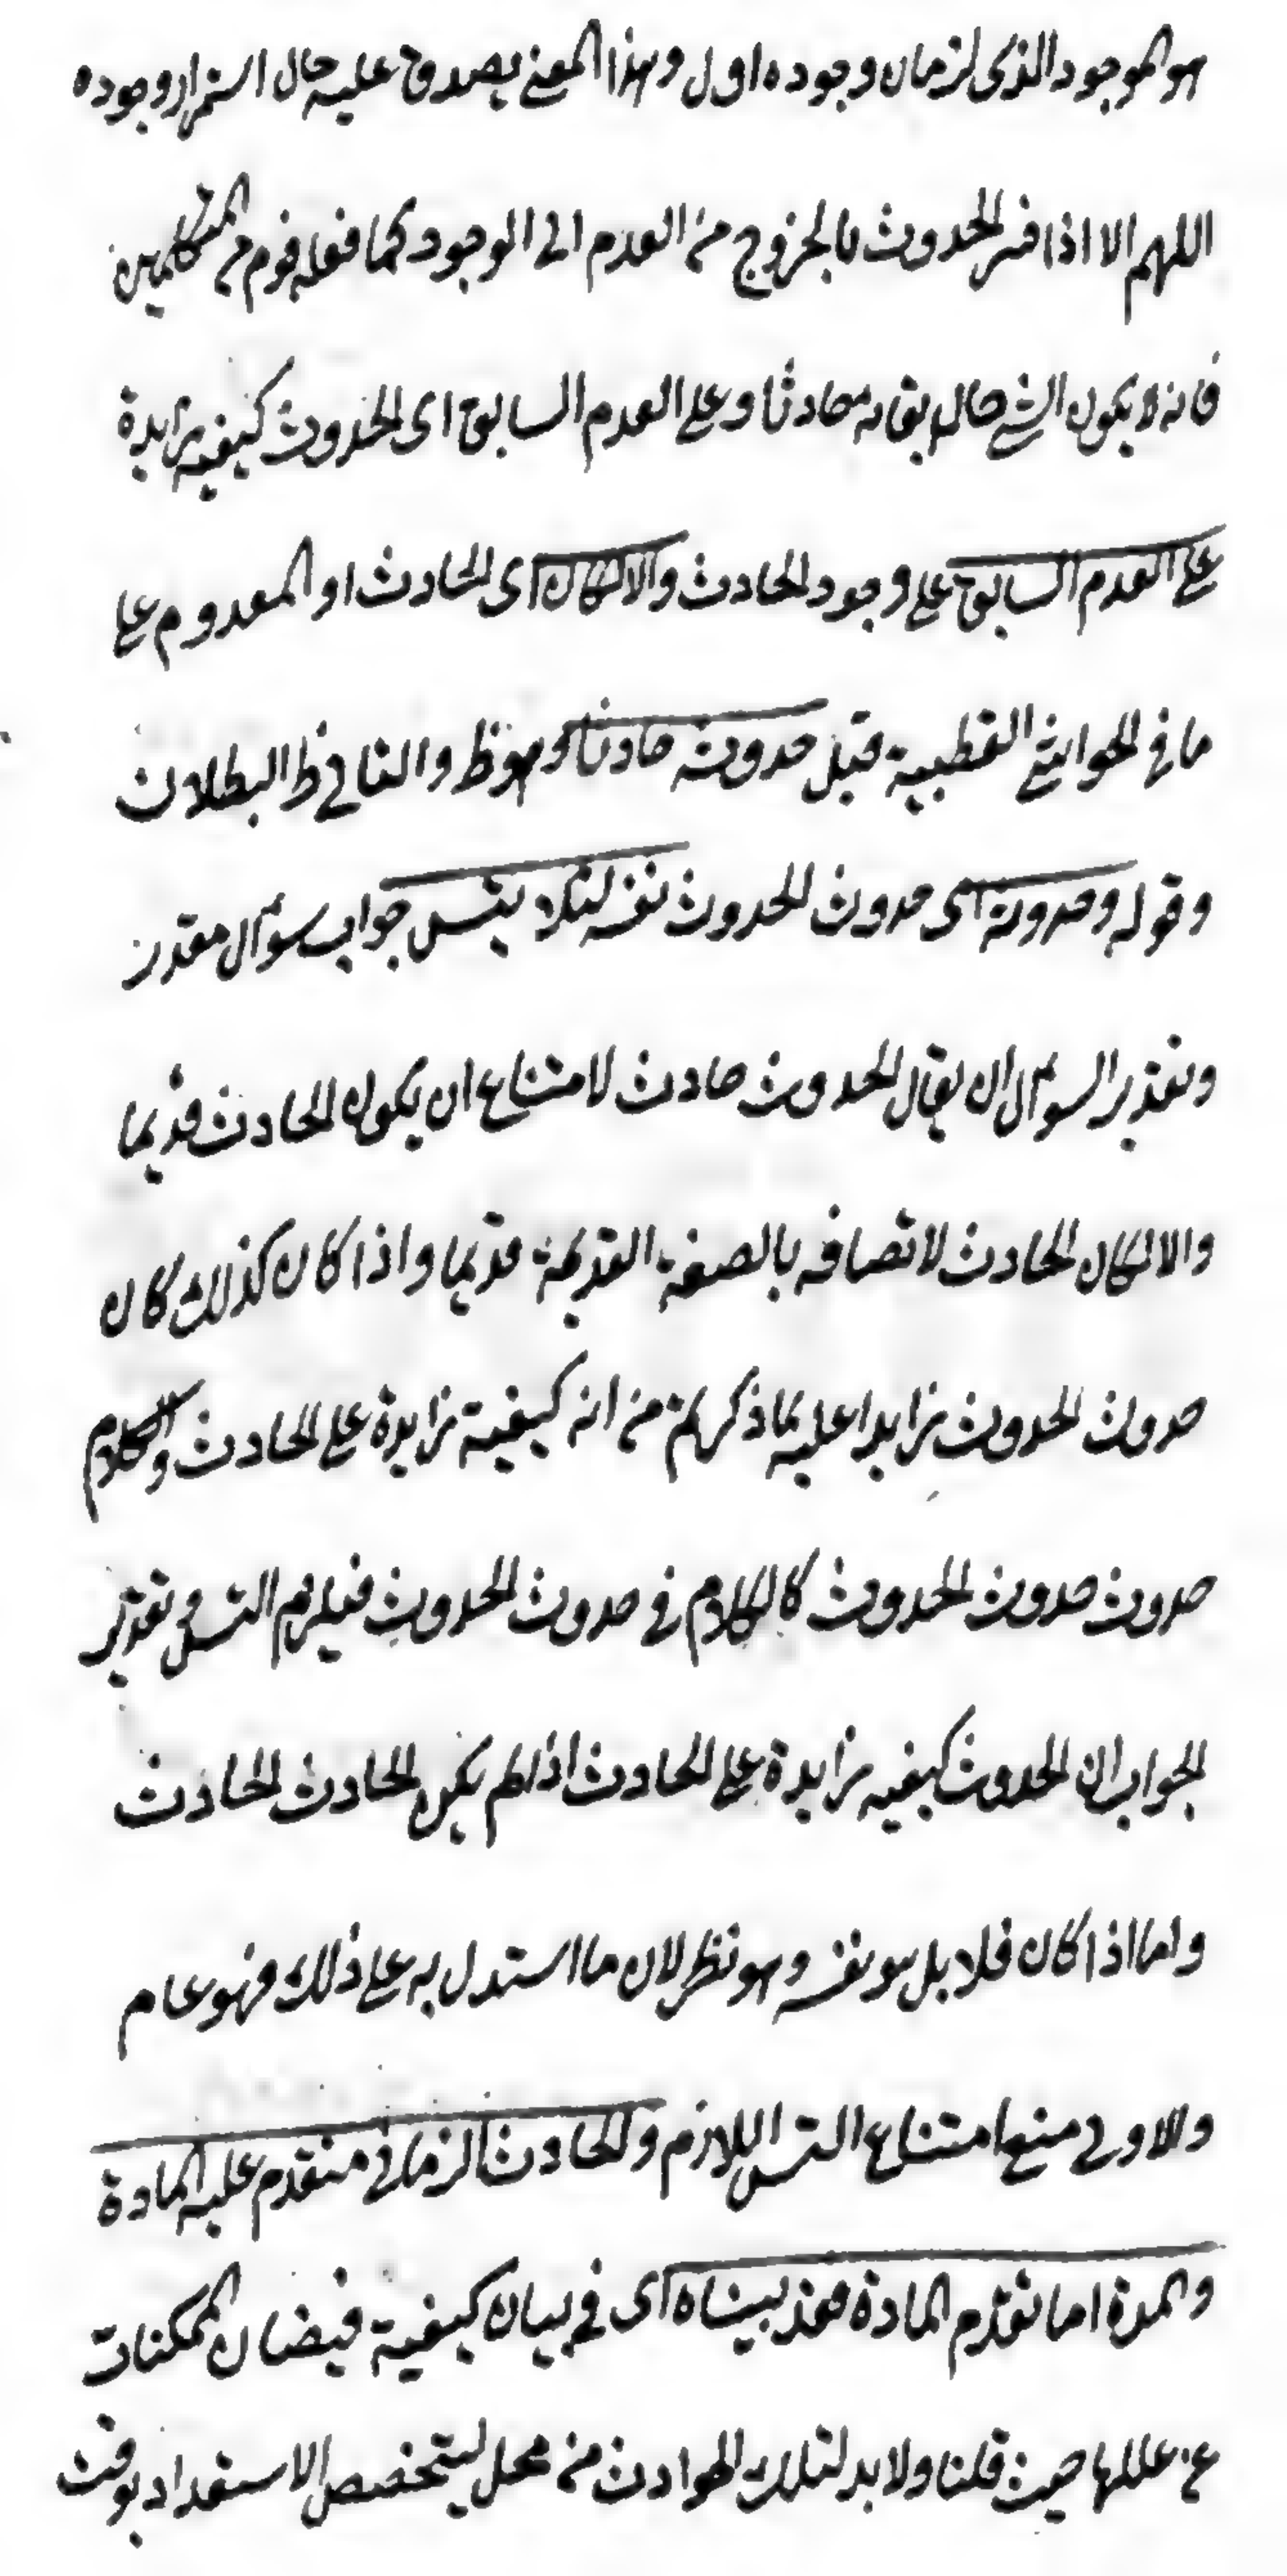 هو الموجود الذى لزمان وجوده اول وهذا المعنى يصدق عليه حال استمرار وجوده
اللهم الا اذا فسر الحدوث بالخروج من العدم الى الوجود كما فعله قوم من المتكلمين
فانه لا يكون الشئ حال بقائه حادثا وعلى العدم السابق اى الحدوث كيفيه زايدة
على العدم السابق على وجود الحادث والا لكان اى الحادث او المعدوم على
ما فى الحواشى القطبية قبل حدوثه حادثا وهو ظ والتالى ظ البطلان
وقوله وحدوثه اى حدوث الحدوث نفسه لئلا يتسلسل جواب سؤال مقدر
وتقدير السؤال ان يقال الحدوث حادث لامتناع ان يكون الحادث قديما
والا لكان الحادث لاتصافه بالصفة القديمة قديما واذا كان كذلك كان
حدوث الحدوث زايدا عليه لما ذكرتم من انه كيفية زايدة على الحادث والكلام
حدوث حدوث الحدوث كالكلام فى حدوث الحدوث فيلزم التس وتقدير
الجواب ان الحدوث كيفيه زايدة على الحادث اذا لم يكن الحادث الحادث
واما اذا كان فلا بل هو نفسه وهو نظر لان ما استدل به على ذلك فهو عام
والاولى منع امتناع التس اللازم والحادث الزمانى متقدم عليه المادة
والمدة اما تقدم المادة فقد بيناه اى فى بيان كيفية فيضان الممكنات
عن عللها حيث قلنا ولا بد لتلك الحوادث من محل ليتخصص الاستعداد بوقت